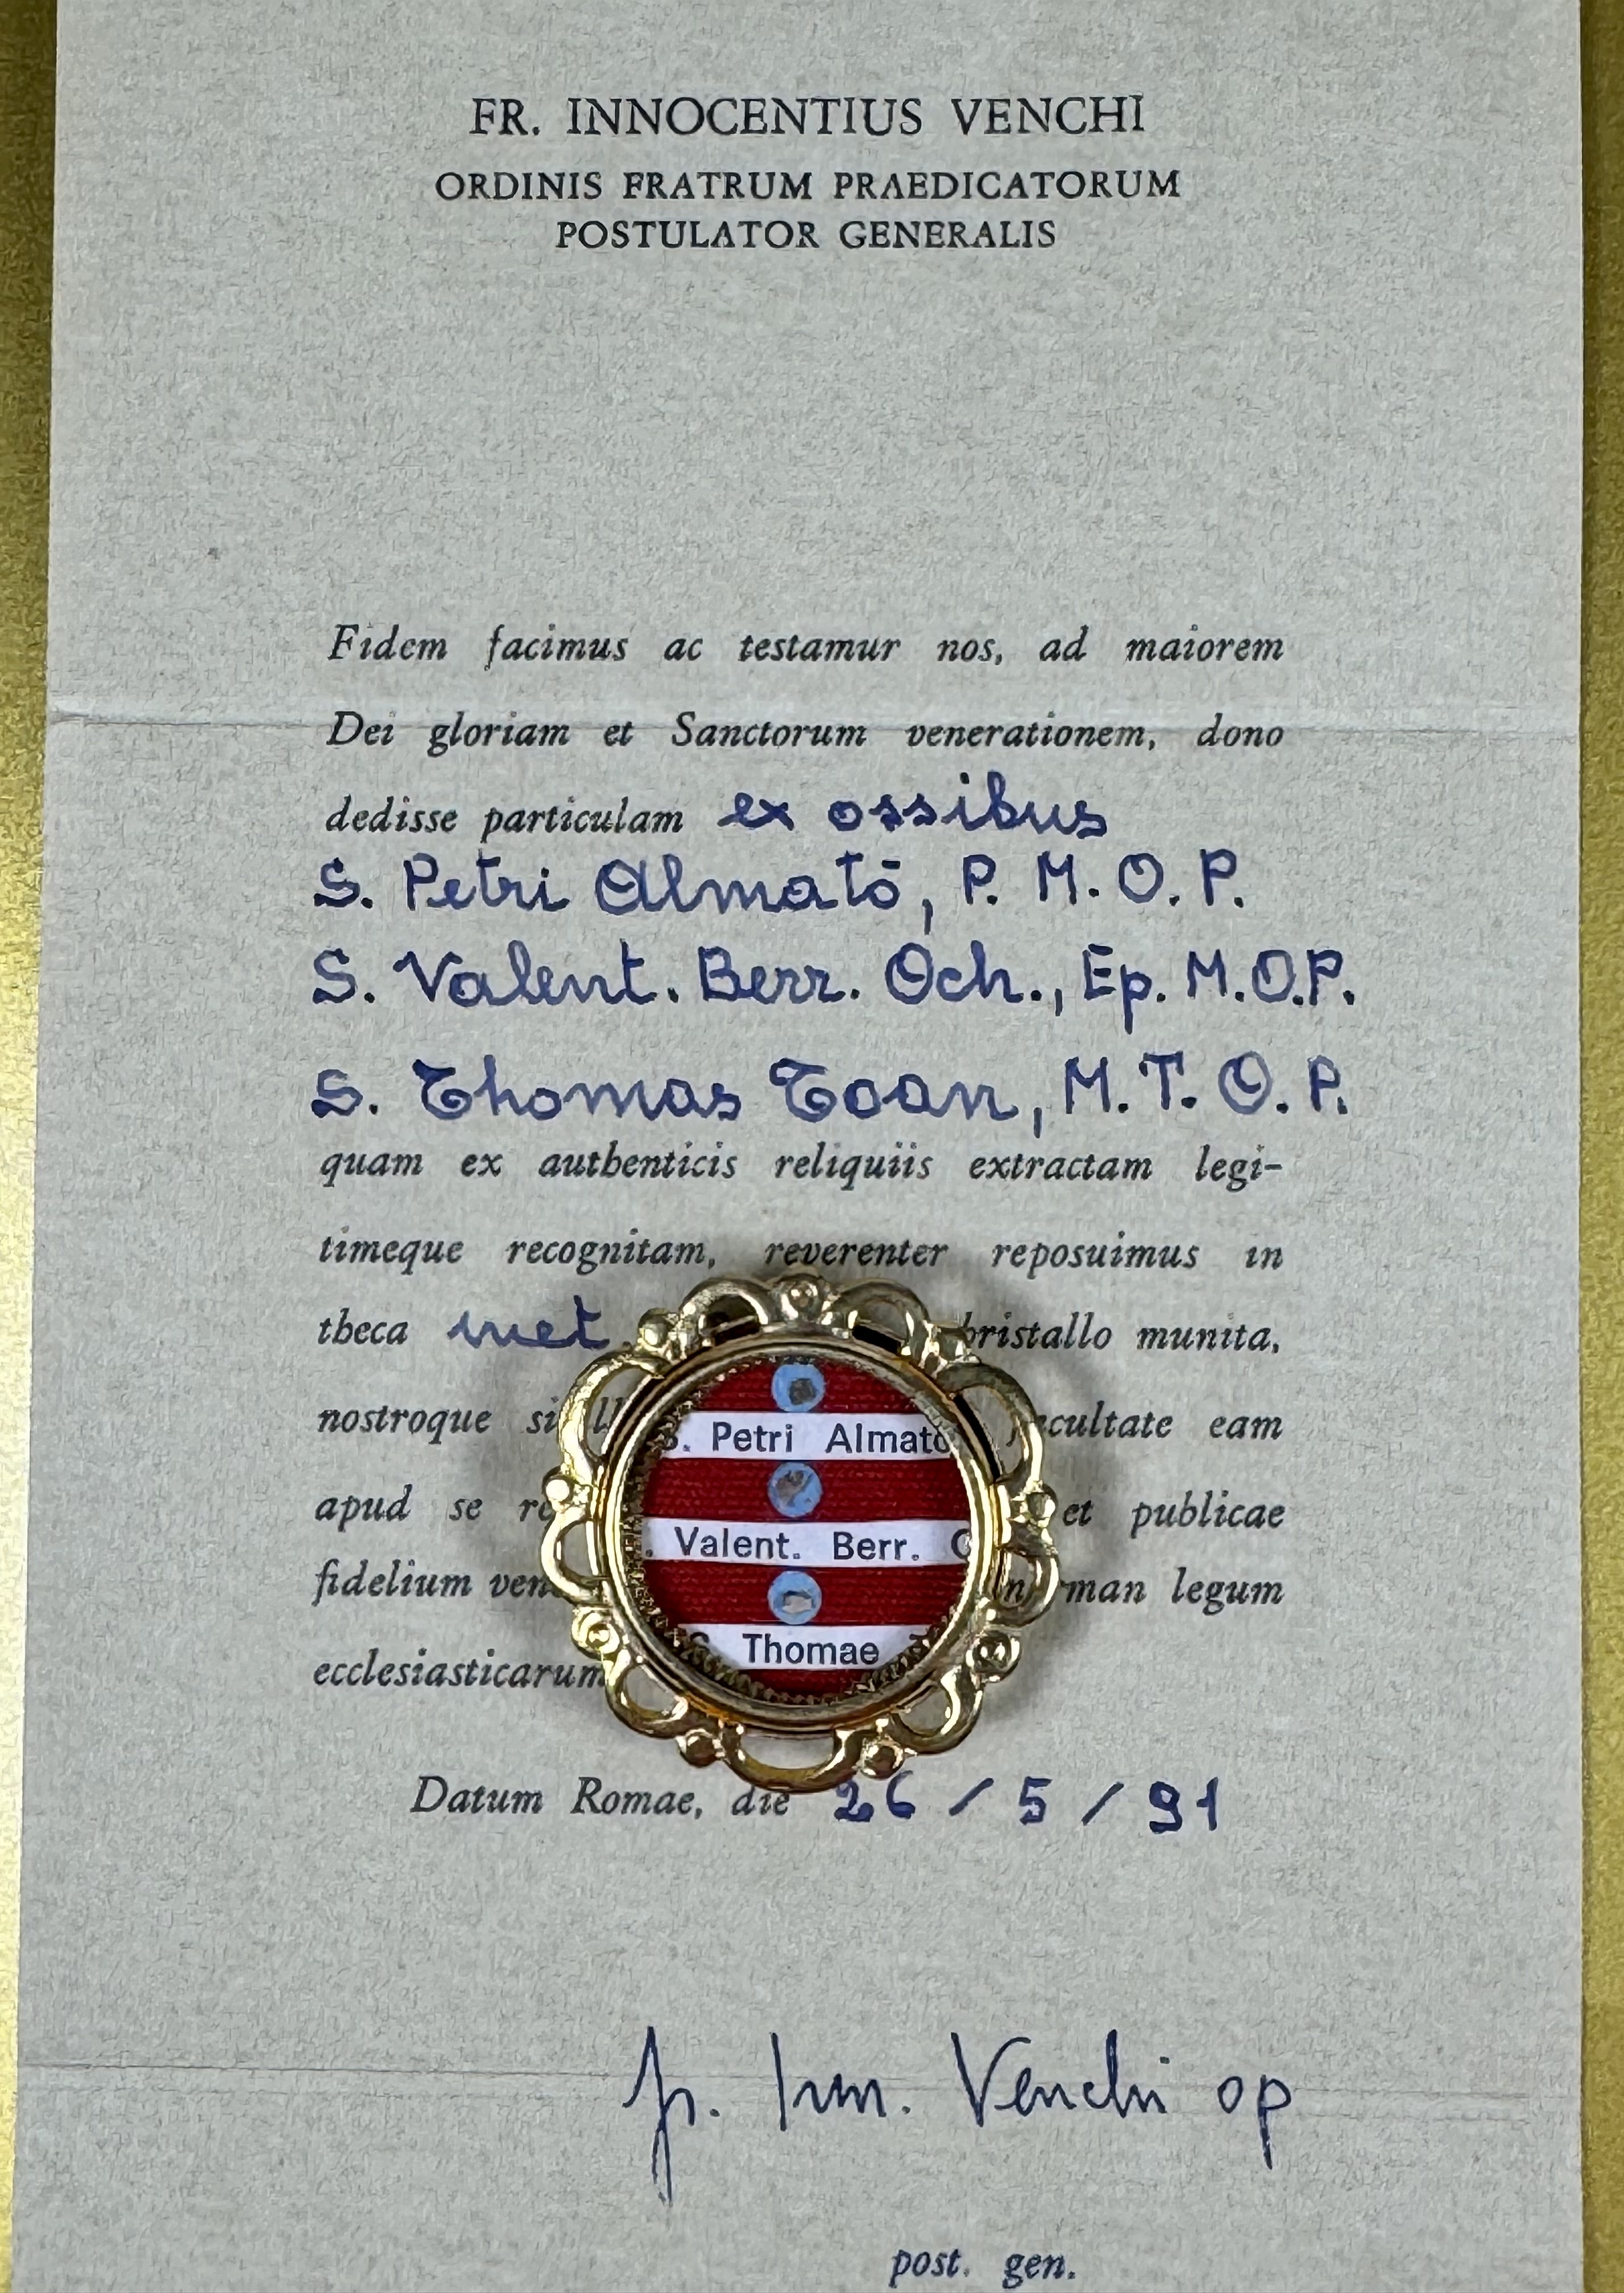 FR. INNOCENTIUS VENCHI
ORDINIS FRATRUM PRAEDICATORUM
POSTULATOR GENERALIS
Fidem facimus ac testamur nos, ad maiorem
Dei gloriam et Sanctorum venerationem, dono
dedisse particulam ex ossibus
S. Petri Almatō, P. M. O. P.
S. Valent. Berr. Och., Ep. M.O.P.
S. Thomas Toan, M. T. O. P.
quam ex authenticis reliquiis extractam legi-
timeque recognitam, reverenter reposuimus in
theca met. christallo munita,
nostroque facultate eam
apud se et publicae
fidelium legum
ecclesiasticarum
S. Petri Almató
Valent. Berr.
S. Thomae
Datum Romae, die 26 / 5 / 91
fr. Inn. Venchi op
post. gen.